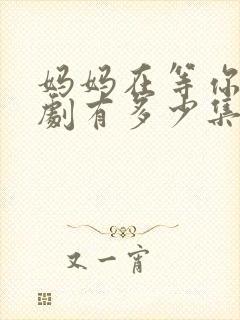 妈妈在等你
劇有多少集
又一宵